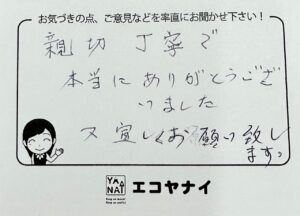 お気づきの点、ご意見などを率直にお聞かせ下さい!
親切 丁寧で
本当にありがとうござ
いました
又宜しくお願い致し
ます。
YANAI
エコヤナイ